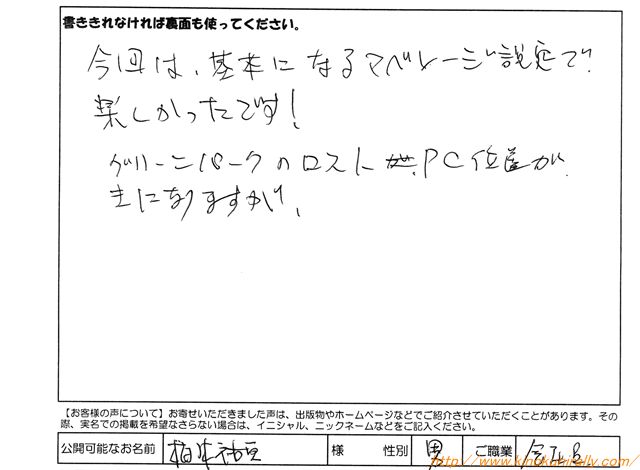 書ききれなければ裏面も使ってください。
今回は、基本になるアベレージ設定で
楽しかったです!
グリーンパークのロスト PC位置が
きになりますが、
【お客様の声について】お寄せいただきました声は、出版物やホームページなどでご紹介させていただくことがあります。その
際、実名での掲載を希望なさらない場合は、イニシャル、ニックネームなどをご記入ください。
公開可能なお名前 様 性別 男 ご職業 会社員